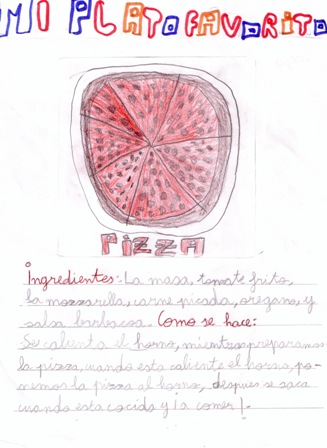 MI PLATO FAVORITO
PIZZA
Ingredientes: La masa, tomate frito,
la mozzarella, carne picada, oregano, y
salsa barbacoa. Como se hace:
Se calienta el horno, mientras preparamos
la pizza, cuando esta caliente el horno, po-
nemos la pizza al horno, despues se saca
cuando esta cocida y ¡a comer!.